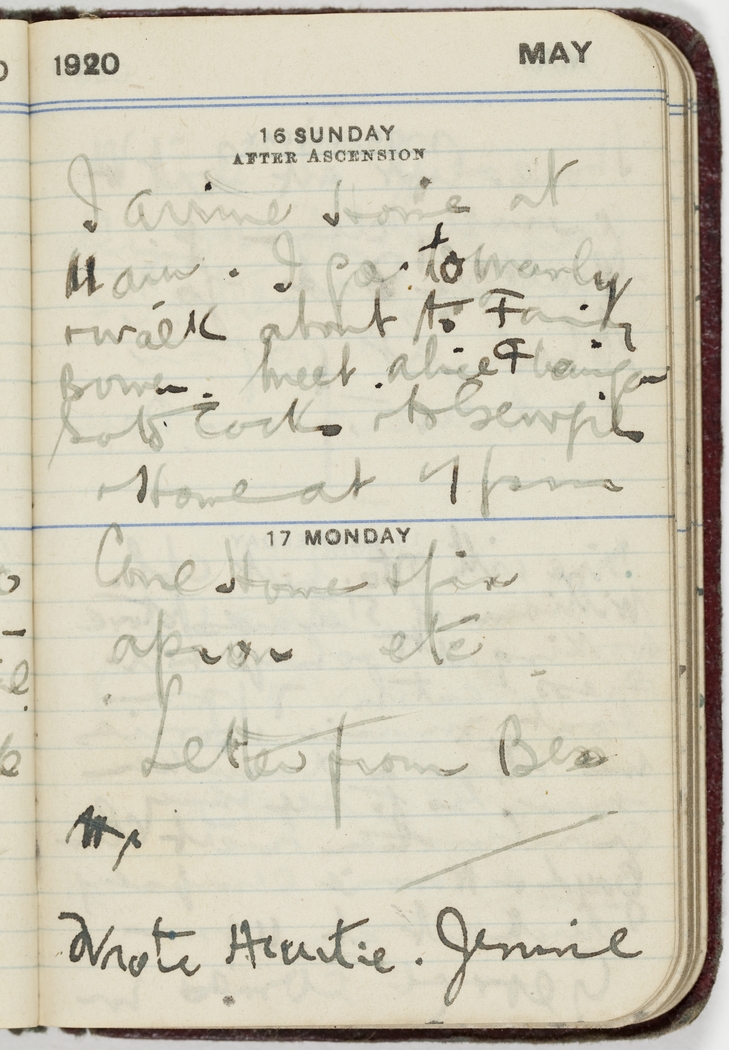 1920 MAY
16 SUNDAY
AFTER ASCENSION
I arrive Home at
11 am. I go to Manly
+ walk about to Fairy
Bower. Meet Alice F
+ to Georges
Home at 7 pm
17 MONDAY
Come Home + fix
apron etc
Letter from Bess
Wrote Auntie. Jennie